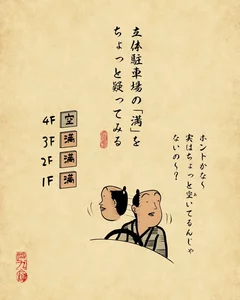 立体駐車場の「満」を
ちょっと疑ってみる
4F 空
3F 満
2F 満
1F 満
ホントかな〜
実はちょっと空いてるんじゃ
ないの〜?